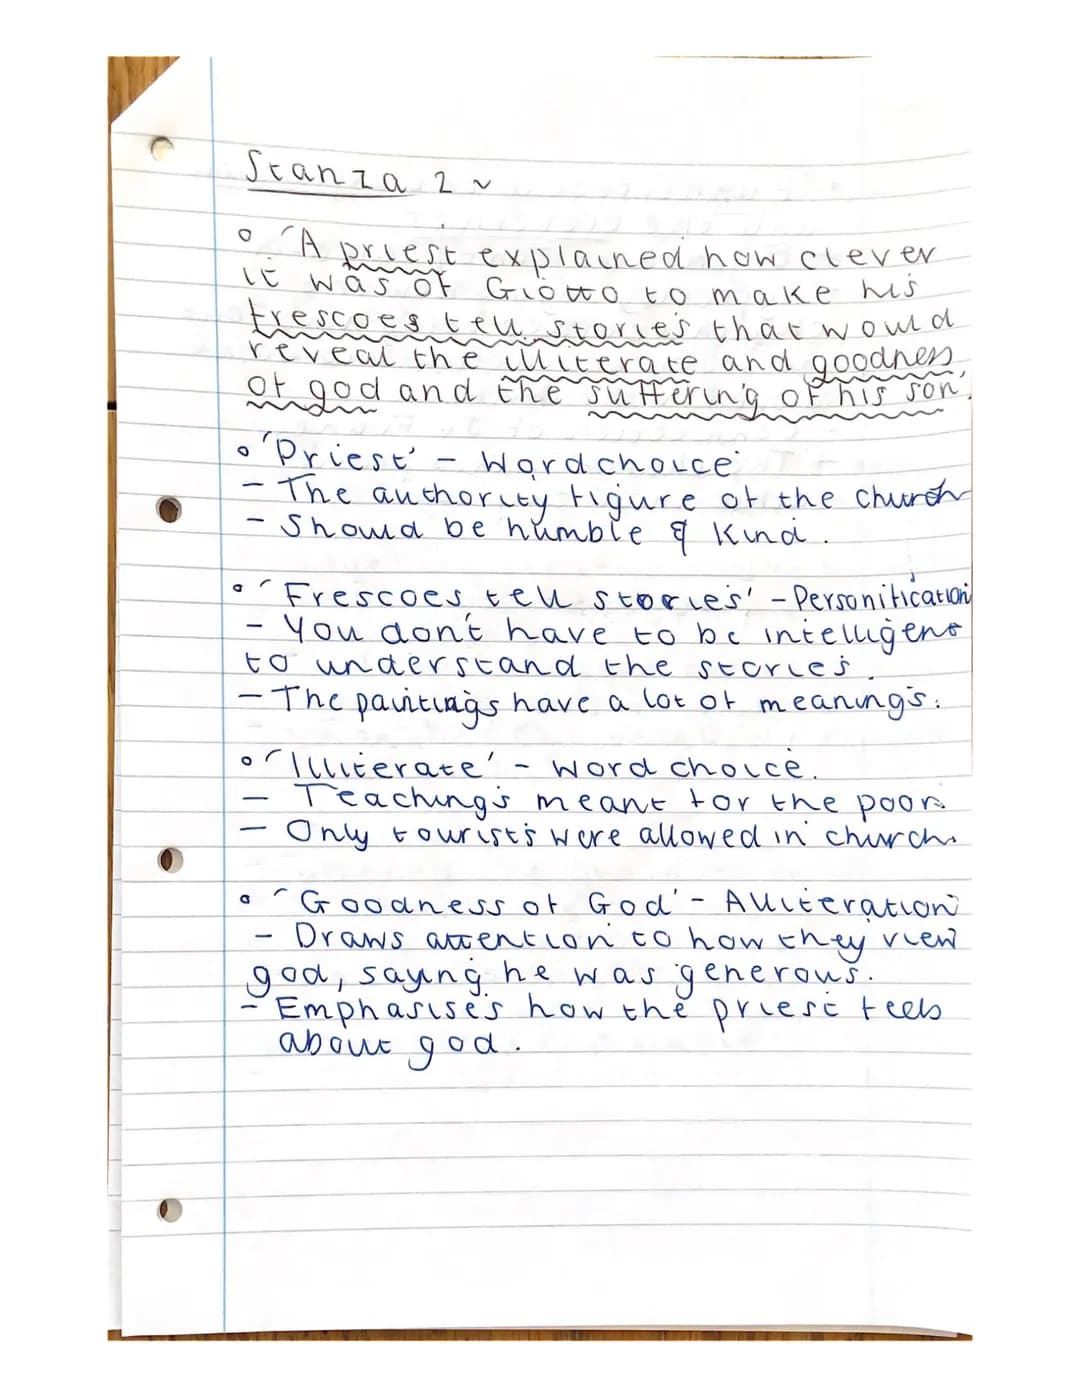 Stanza 2 ~
◦ 'A priest explained how clever
it was of Giotto to make his
frescoes tell stories that would
reveal the illiterate and goodness
of god and the suffering of his son'
◦ 'Priest' - Word choice
- The authority figure of the church
- Should be humble & kind.
◦ 'Frescoes tell stories' - Personification
- You don't have to be intelligent
to understand the stories.
- The paintings have a lot of meanings.
◦ 'Illiterate' - Word choice.
- Teachings meant for the poor.
- Only tourists were allowed in church.
◦ 'Goodness of God' - Alliteration
- Draws attention to how they view
god, saying he was generous.
- Emphasises how the priest feels
about god.